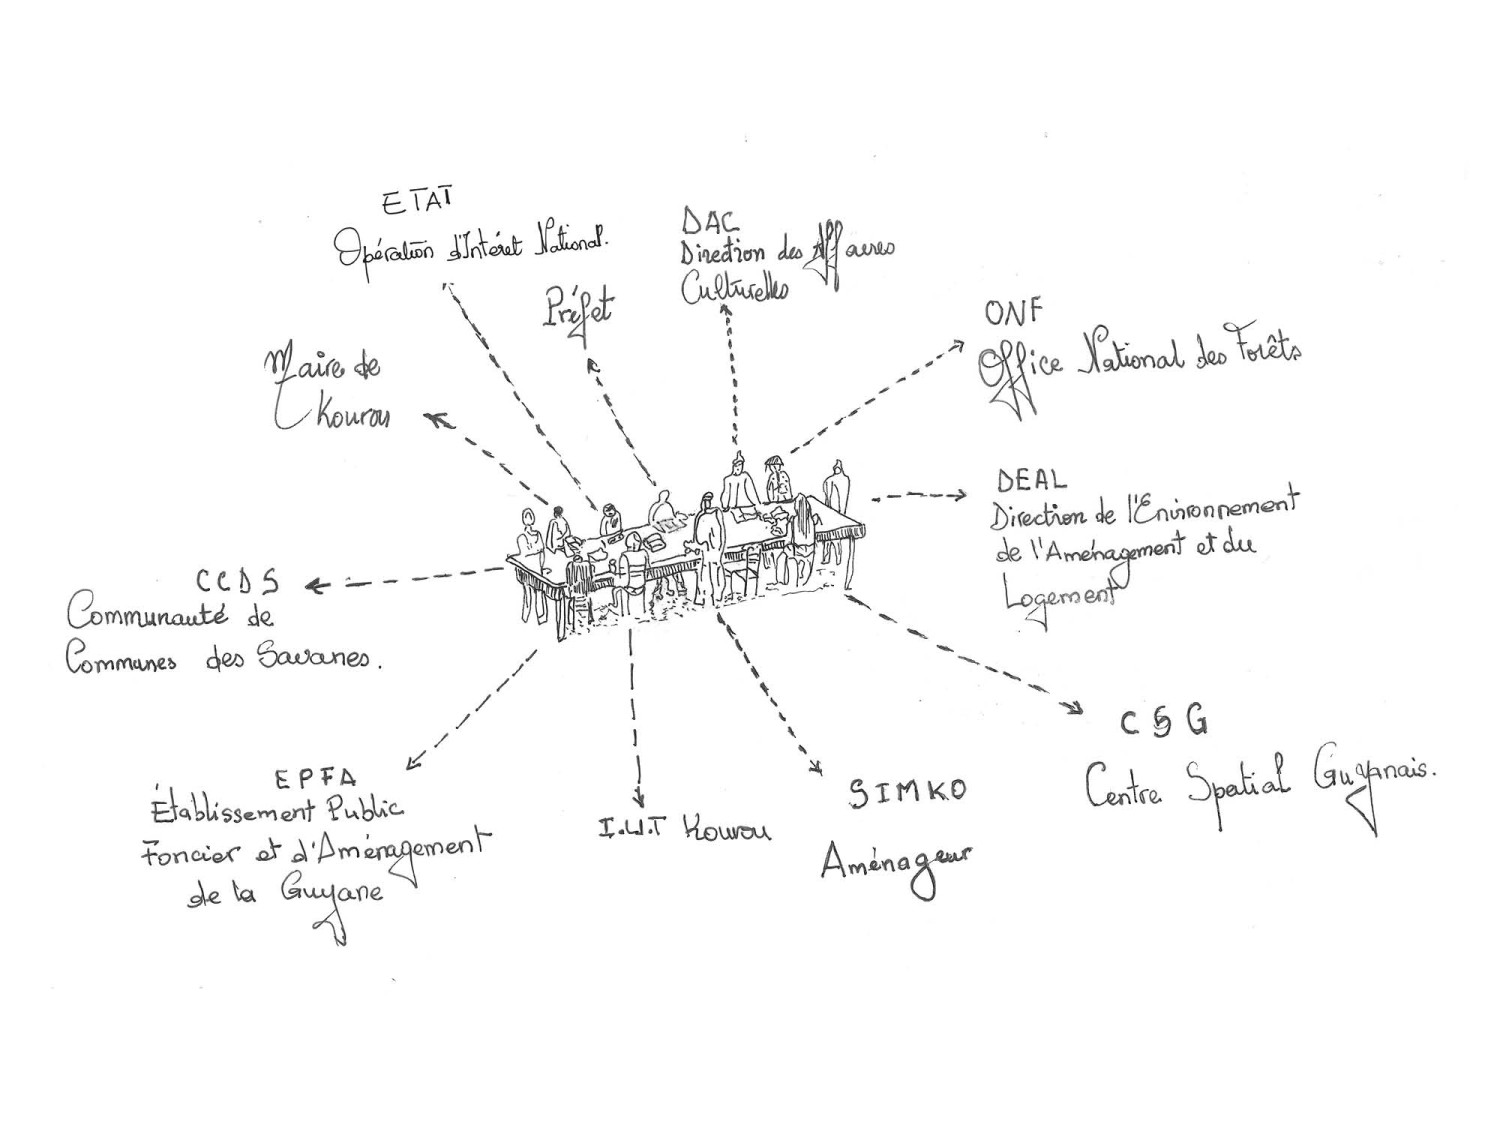 ETAT
Opération d'Intérêt National.
DAC
Direction des Affaires
Culturelles
Préfet
ONF
Office National des Forêts
Maire de
Kourou
DEAL
Direction de l'Environnement
de l'Aménagement et du
Logement
CCDS
Communauté de
Communes des Savanes.
CSG
Centre Spatial Guyanais.
EPFA
Établissement Public
Foncier et d'Aménagement
de la Guyane
I.U.T Kourou
SIMKO
Aménageur